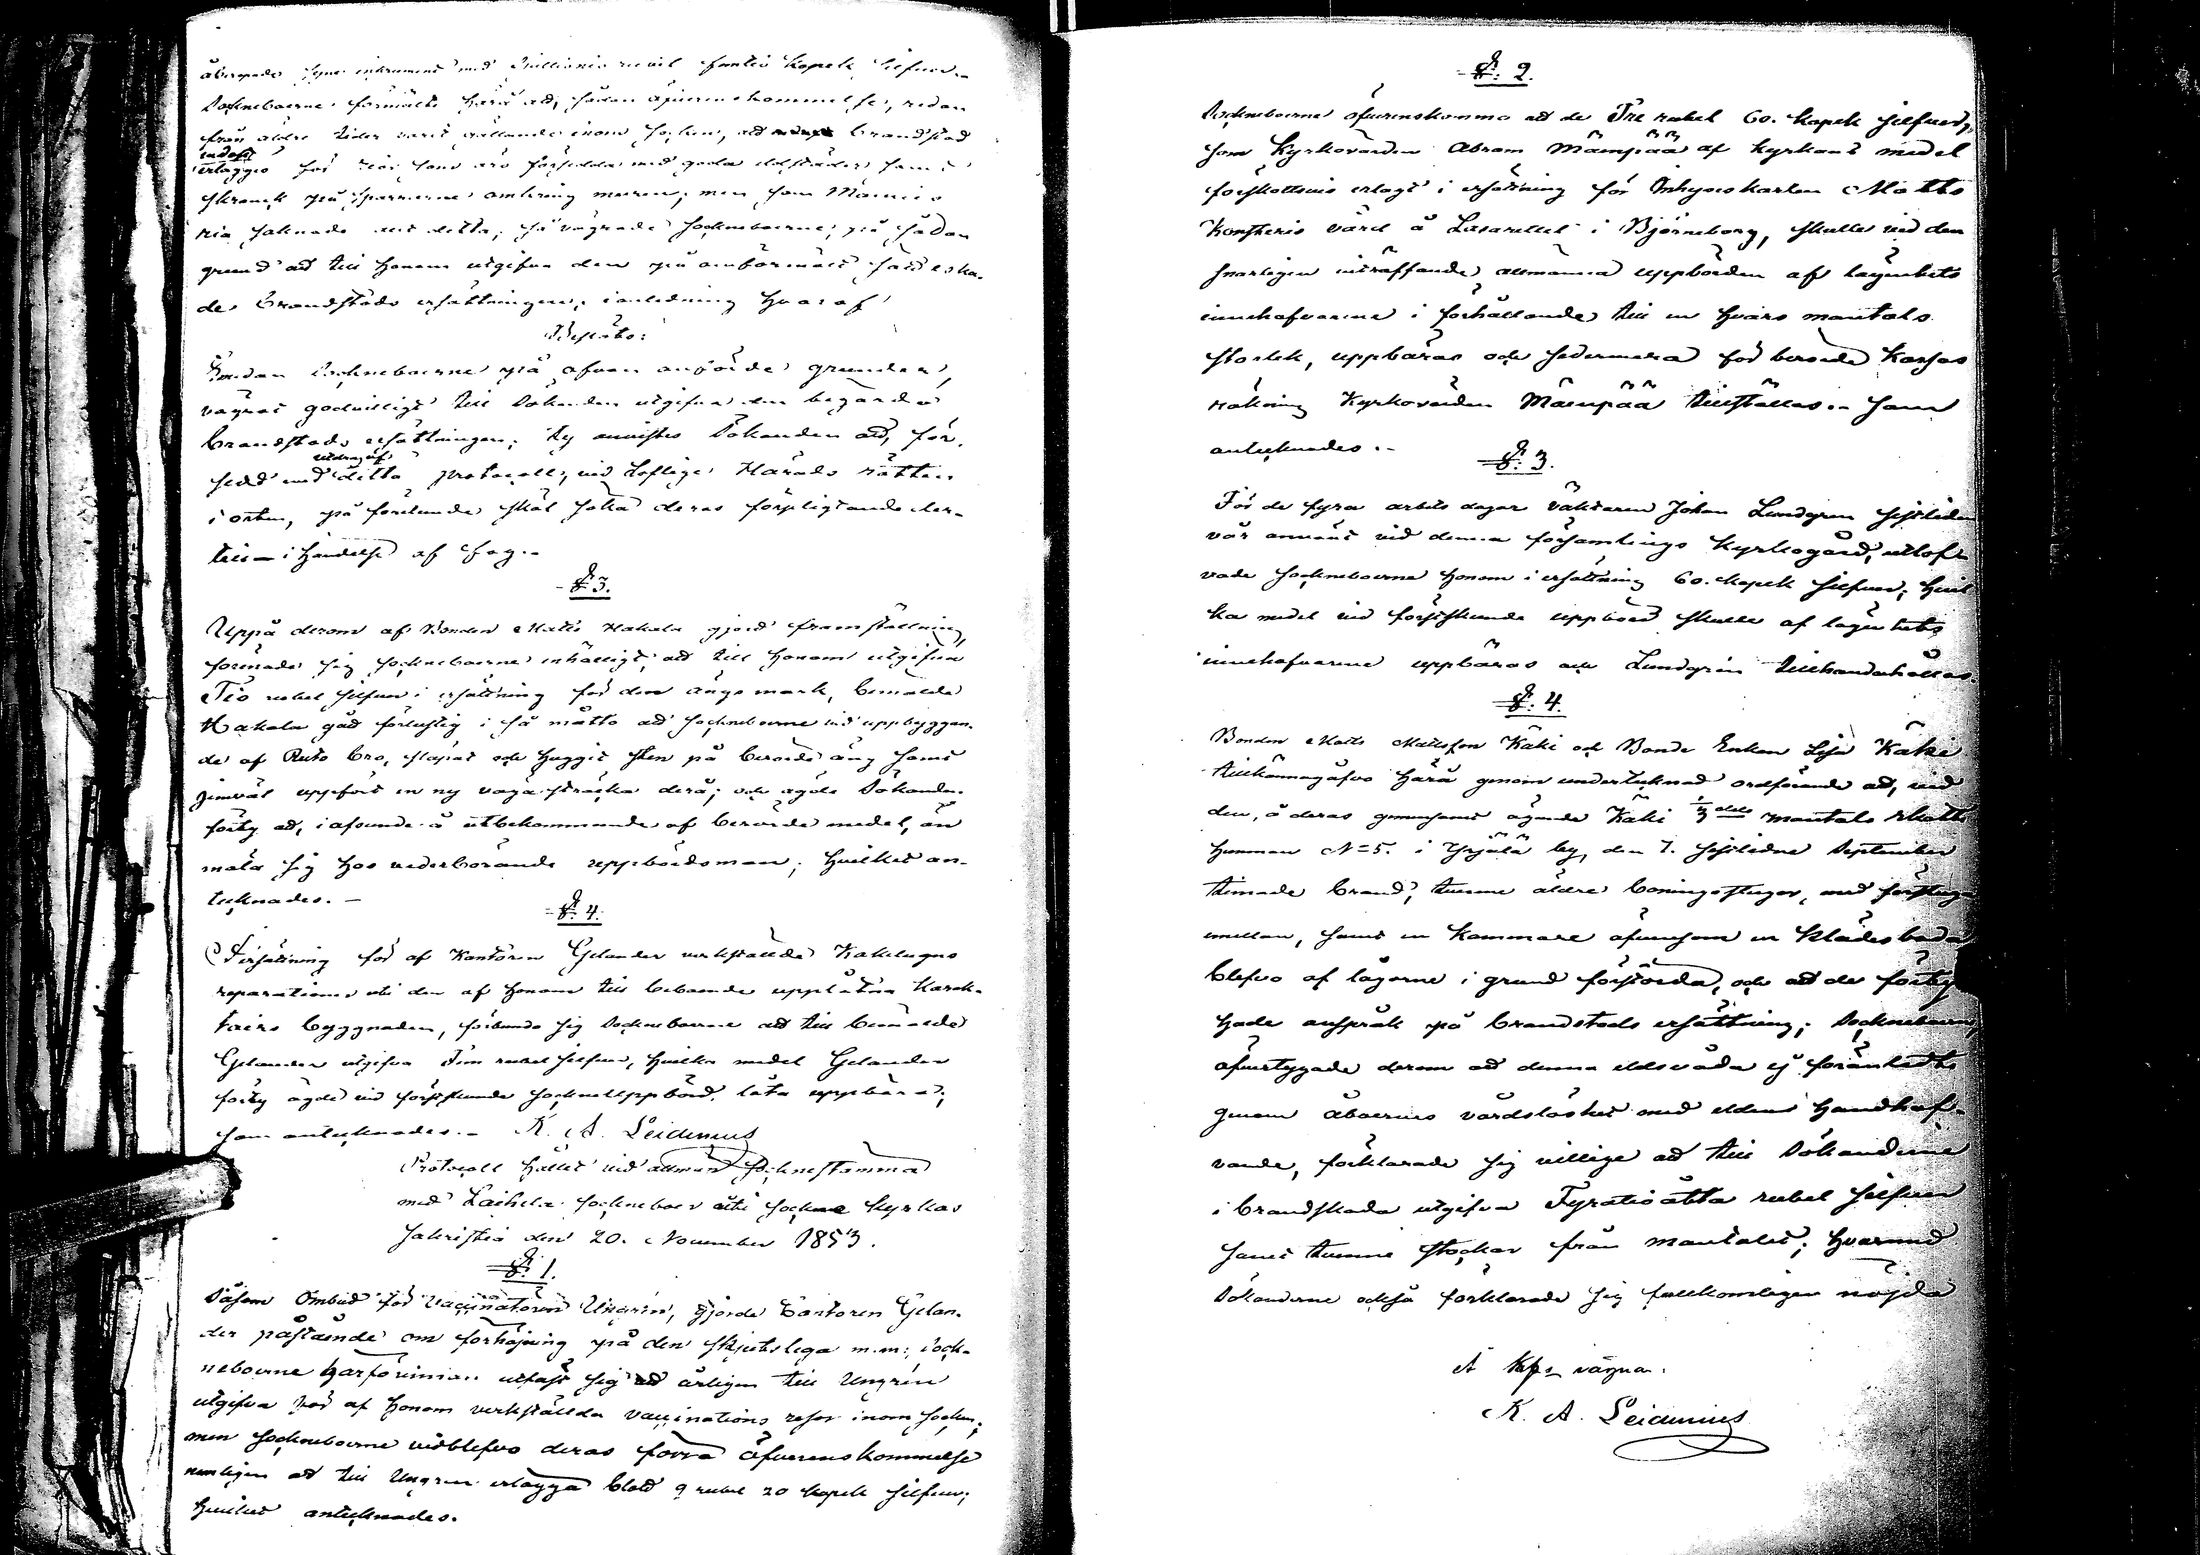 åberopade syne instrument med rubel femtio kopek silfver.
Sockneboerne förmälte härå att, sådan öfverenskommelse, redan
från äldre tider varit gällande inom socknen, att brandstod
endast
erlägges för som äro försedda med goda eldstäder samt
på sparrarne omkring muren; men som
ria saknade allt detta, så vägrade Socknboerne, på sådan
grund att till honom utgifva den på omförmält sätt äska-
de Brandstods ersättningen; i anledning hvaraf
Beslöts:
Sedan Socknboerne på ofvan anförde grunder,
vägrat godvilligt till Sökanden utgifva den begärda
brandstods ersättningen; Ty anvistes Sökanden att, för-
utdrag af
sedd med detta protocoll, vid Loflige Härads rätten
i orten, på förelunde skäl söka deras förpligtande der-
till i händelse af fog.-
§ 3.
Uppå derom af Bonden Matts Hakala gjord framställning,
förenade sig Socknboerne enhälligt, att till honom utgifva
Tio rubel silfver i ersättning för den ängs mark, bemälde
Hakala gått förlustig i så måtto att Socknboerne vid uppbyggan-
de af Ruto bro, släpat och huggit sten på berörde äng samt
jemväl uppfört en ny väga sträcka derå; och ägde Sökanden
förty att, i afseende å utbekommande af berörde medel, an
mäla sig hos vederbörande uppbördsman; hvilket an-
tecknades. -
§ 4.
I ersättning för af Kantorn Gelander verkstälde Kakelugns
reparationer uti den af honom till beboende upplåtna
byggnaden, förbundo sig Sockneboerne att till bemälde
Gelander utgifva Fem rubel silfver, hvilka medel Gelander
förty ägde vid förstkunde sockneuppbörd låta uppbära;
som antecknades.- K. A. Leidenius
Protocoll hållet vid allmän Sockne stämma
med Laihela Socknboer uti Sockne kyrkas
Sakristia den 20. November 1853.
§. 1.
Såsom Ombud för Vaccinatoren Ungrin, gjorde Cantoren Gelan-
der påstående om förhöjning på den skjutslega m.m; Sock-
neboerne härförinnan utfäst sig att årligen till Ungrin
utgifva för af honom verkställda vaccinations resor inom Socknen;
men Sockneboerne vidblefvo deras förra öfverenskommelse
nemligen att till Ungrin erlägga blott 9 rubel 20 kopek silfver;
hvilket antecknades.
§. 2.
Sockneboerne öfverenskomma att de Tre rubel 60. kopek silfver,
som Kyrkovärden Abram Mäenpää af kyrkans medel
förskottsvis erlagt i ersättning för Inhyseskarlen Matts
vård å Lasarettet i Björneborg, skulle vid den
snarligen inträffande allmänna uppbörden af lägenhets
innehafvarena i förhållande till en hvars mantals
storlek, uppbäras och sedermera för berörde Kassas
räkning Kyrkovärden Mäenpää tillställas.- som
antecknades.-
§. 3.
För de fyra arbets dagar väktaren Johan Lundgren sistliden
vår använt vid denna församlings kyrkogård, utlof-
vade Sockneboerne honom i ersättning 60. kopek silfver; hvil
ka medel vid förstkunde uppbörd skulle af lägenhets
innehafvarena uppbäras och Lundgrin tillhandahållas.
§. 4.
Bonden Matts Mattsson Käki och Bonde Enkan Lisa Käki
tillkännagåfvo härå genom undertecknad ordförande att, vid
den, å deras gemensamt ägande Käki 1/3 dels mantals skatte
hemman N=5. i by, den 7. sistledne September
timade brand, tvenne äldre boningsstugor, med förstuga
emellan, samt en kammare äfvensom en klädes bod
blefvo af lågorne i grund förstörda, och att de förty
hade anspråk på brandstods ersättning; Sockneboerne,
öfvertygade derom att denna eldsvåda ej föranledts
genom åboernes vårdslöshet med eldens handhaf-
vande, förklarade sig villige att till Sökanderne
i brandskada utgifva Fyratio åtta rubel silfver
samt tvenne stockar från mantalet; hvarmed
Sökanderne också förklarade sig fullkomligen nöjda
K. A. Leidenius